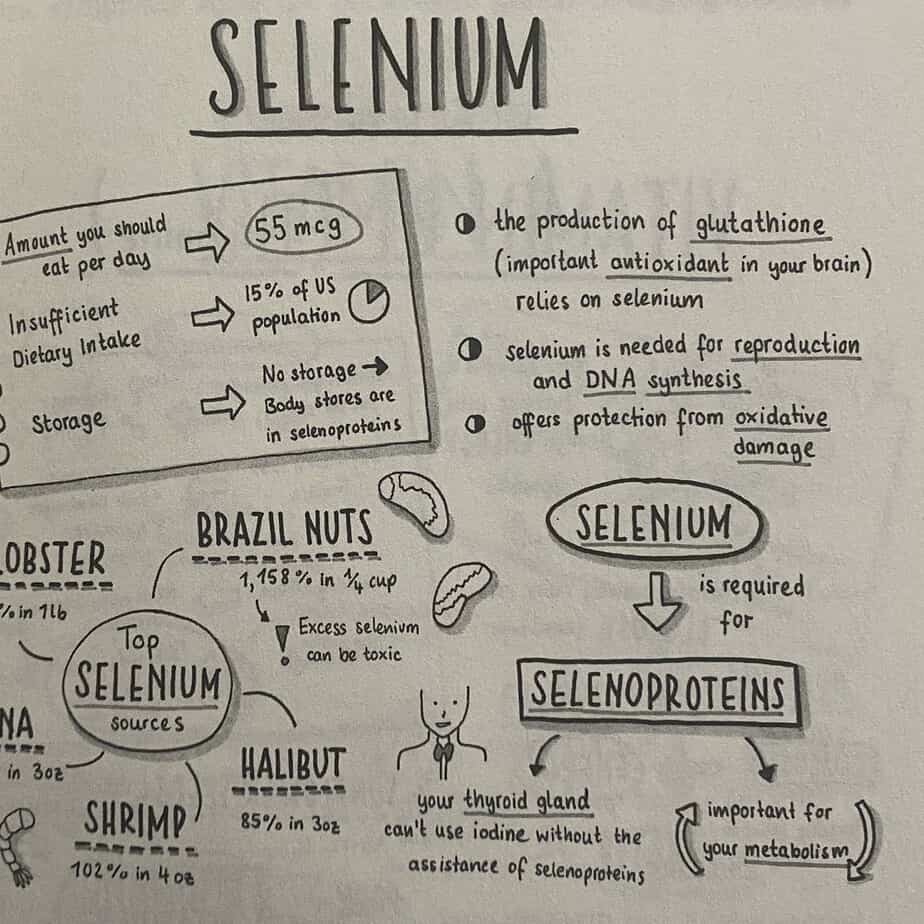 SELENIUM
Amount you should
eat per day
55 mcg
Insufficient
Dietary Intake
15% of US
population
Storage
No storage →
Body stores are
in selenoproteins
the production of glutathione
(important antioxidant in your brain)
relies on selenium
selenium is needed for reproduction
and DNA synthesis
offers protection from oxidative
damage
OBSTER
% in 1lb
BRAZIL NUTS
1,158% in 1/4 cup
! Excess selenium
can be toxic
Top
SELENIUM
sources
NA
in 3oz
HALIBUT
85% in 3oz
SHRIMP
102% in 4oz
SELENIUM
is required
for
SELENOPROTEINS
your thyroid gland
can't use iodine without the
assistance of selenoproteins
important for
your metabolism